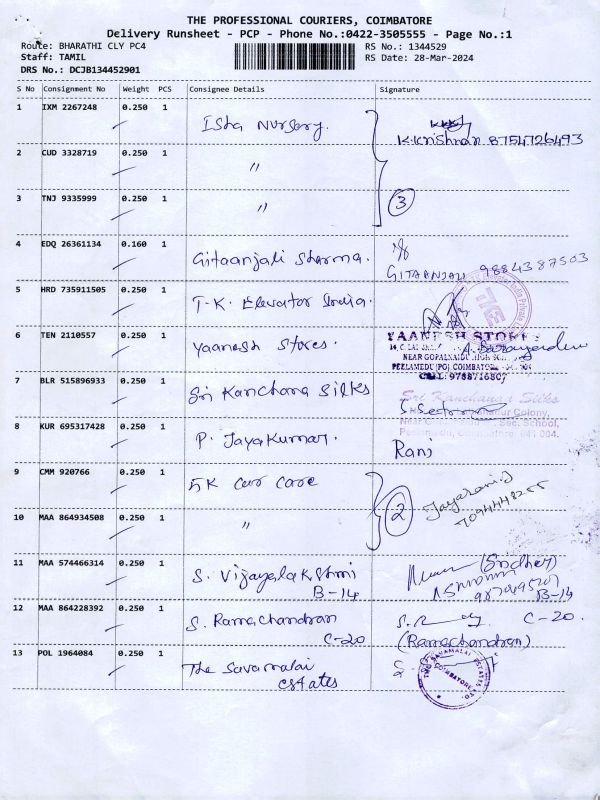 THE PROFESSIONAL COURIERS, COIMBATORE
Delivery Runsheet - PCP - Phone No.:0422-3505555 - Page No.:1
Route: BHARATHI CLY PC4
RS No.: 1344529
Staff: TAMIL
RS Date: 28-Mar-2024
DRS No.: DCJB134452901
S No Consignment No Weight PCS Consignee Details Signature
1 IXM 2267248 0.250 1 Isha Nursery.
K.Krishnan 8754726493
2 CUD 3328719 0.250 1 "
3 TNJ 9335999 0.250 1 " 3
4 EDQ 26361134 0.160 1 Gitaanjali Sharma.
GITAANJALI 9884387503
5 HRD 735911505 0.250 1 T-K. Elevator India.
6 TEN 2110557 0.250 1 Yaanesh Stores.
YAANESH STORES
NEAR GOPALNAIDU HIGH SCHOOL
PEELAMEDU (PO) COIMBATORE
CELL: 9788716807
7 BLR 515896933 0.250 1 Sri Kanchana Silks
Sri Kanchanaa Silks
Colony,
Sec. School,
8 KUR 695317428 0.250 1 P. Jayakumar. Rani
9 CMM 920766 0.250 1 5K Car Care
10 MAA 864934508 0.250 1 " 2
11 MAA 574466314 0.250 1 S. Vijayalakshmi (Sridher)
B-14 B-14
12 MAA 864228392 0.250 1 S. Ramachandran C-20.
C-20 (Ramachandran)
13 POL 1964084 0.250 1 The Savamalai
estates